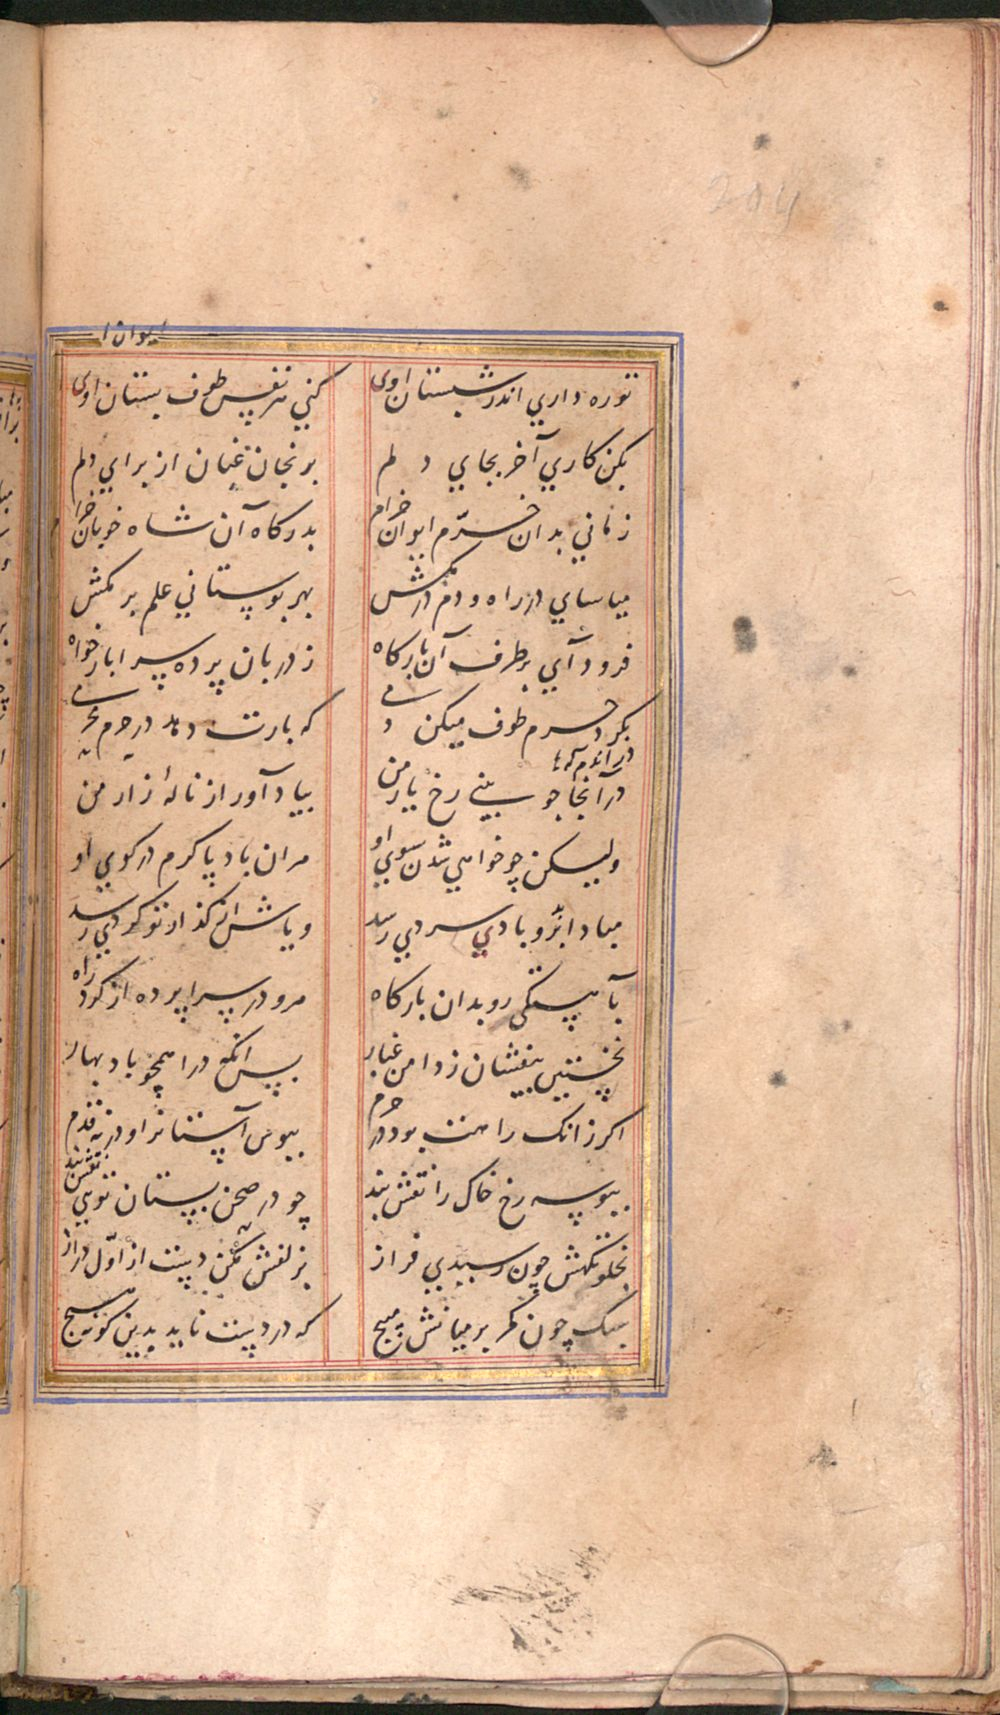 ایوان
توره داري اندر شبستان اوی
کني هر نفس طوف بستان اوی
بکن کاري آخر بجاي دلم
برنجان عنان از براي دلم
زماني بدان خرّم ایوان خرام
بدرکاه آن شاه خوبان خرام
میاسای در راه و دم در مکش
بهر بوستاني علم بر مکش
فرود آي بر طرف آن بارکاه
ز دربان پرده سرا بار خواه
بکرد حرم طوف میکن دمی
که بارت دهد در حرم محرمی
در آندم که با
در آنجا چو بینی رخ یار من
بیاد آور از نالۀ زار من
ولیکن چو خواهي شدن سوي او
مران باد پا کرم در کوي او
مبادا بر و بادي سردي رسد
و یا ش از تو کردي رسد
بآهستکی رو بدان بارکاه
مرو در سراپرده از کرد راه
نخستین بیفشان ز دامن غبار
پس آنکه درا همچو باد بهار
اکر زانک راهت بود در حرم
ببوس آستانرا و در نه قدم
چو در صحن بستان شوي نقش بند
ببوسه رخ خاک را نقش بند
بخلوتکهش چون رسیدي فراز
بزلفش مکن دست از اوّل دراز
سبک چون کمر بر میانش مپیچ
که در دست ناید بدین کونه هیچ
204